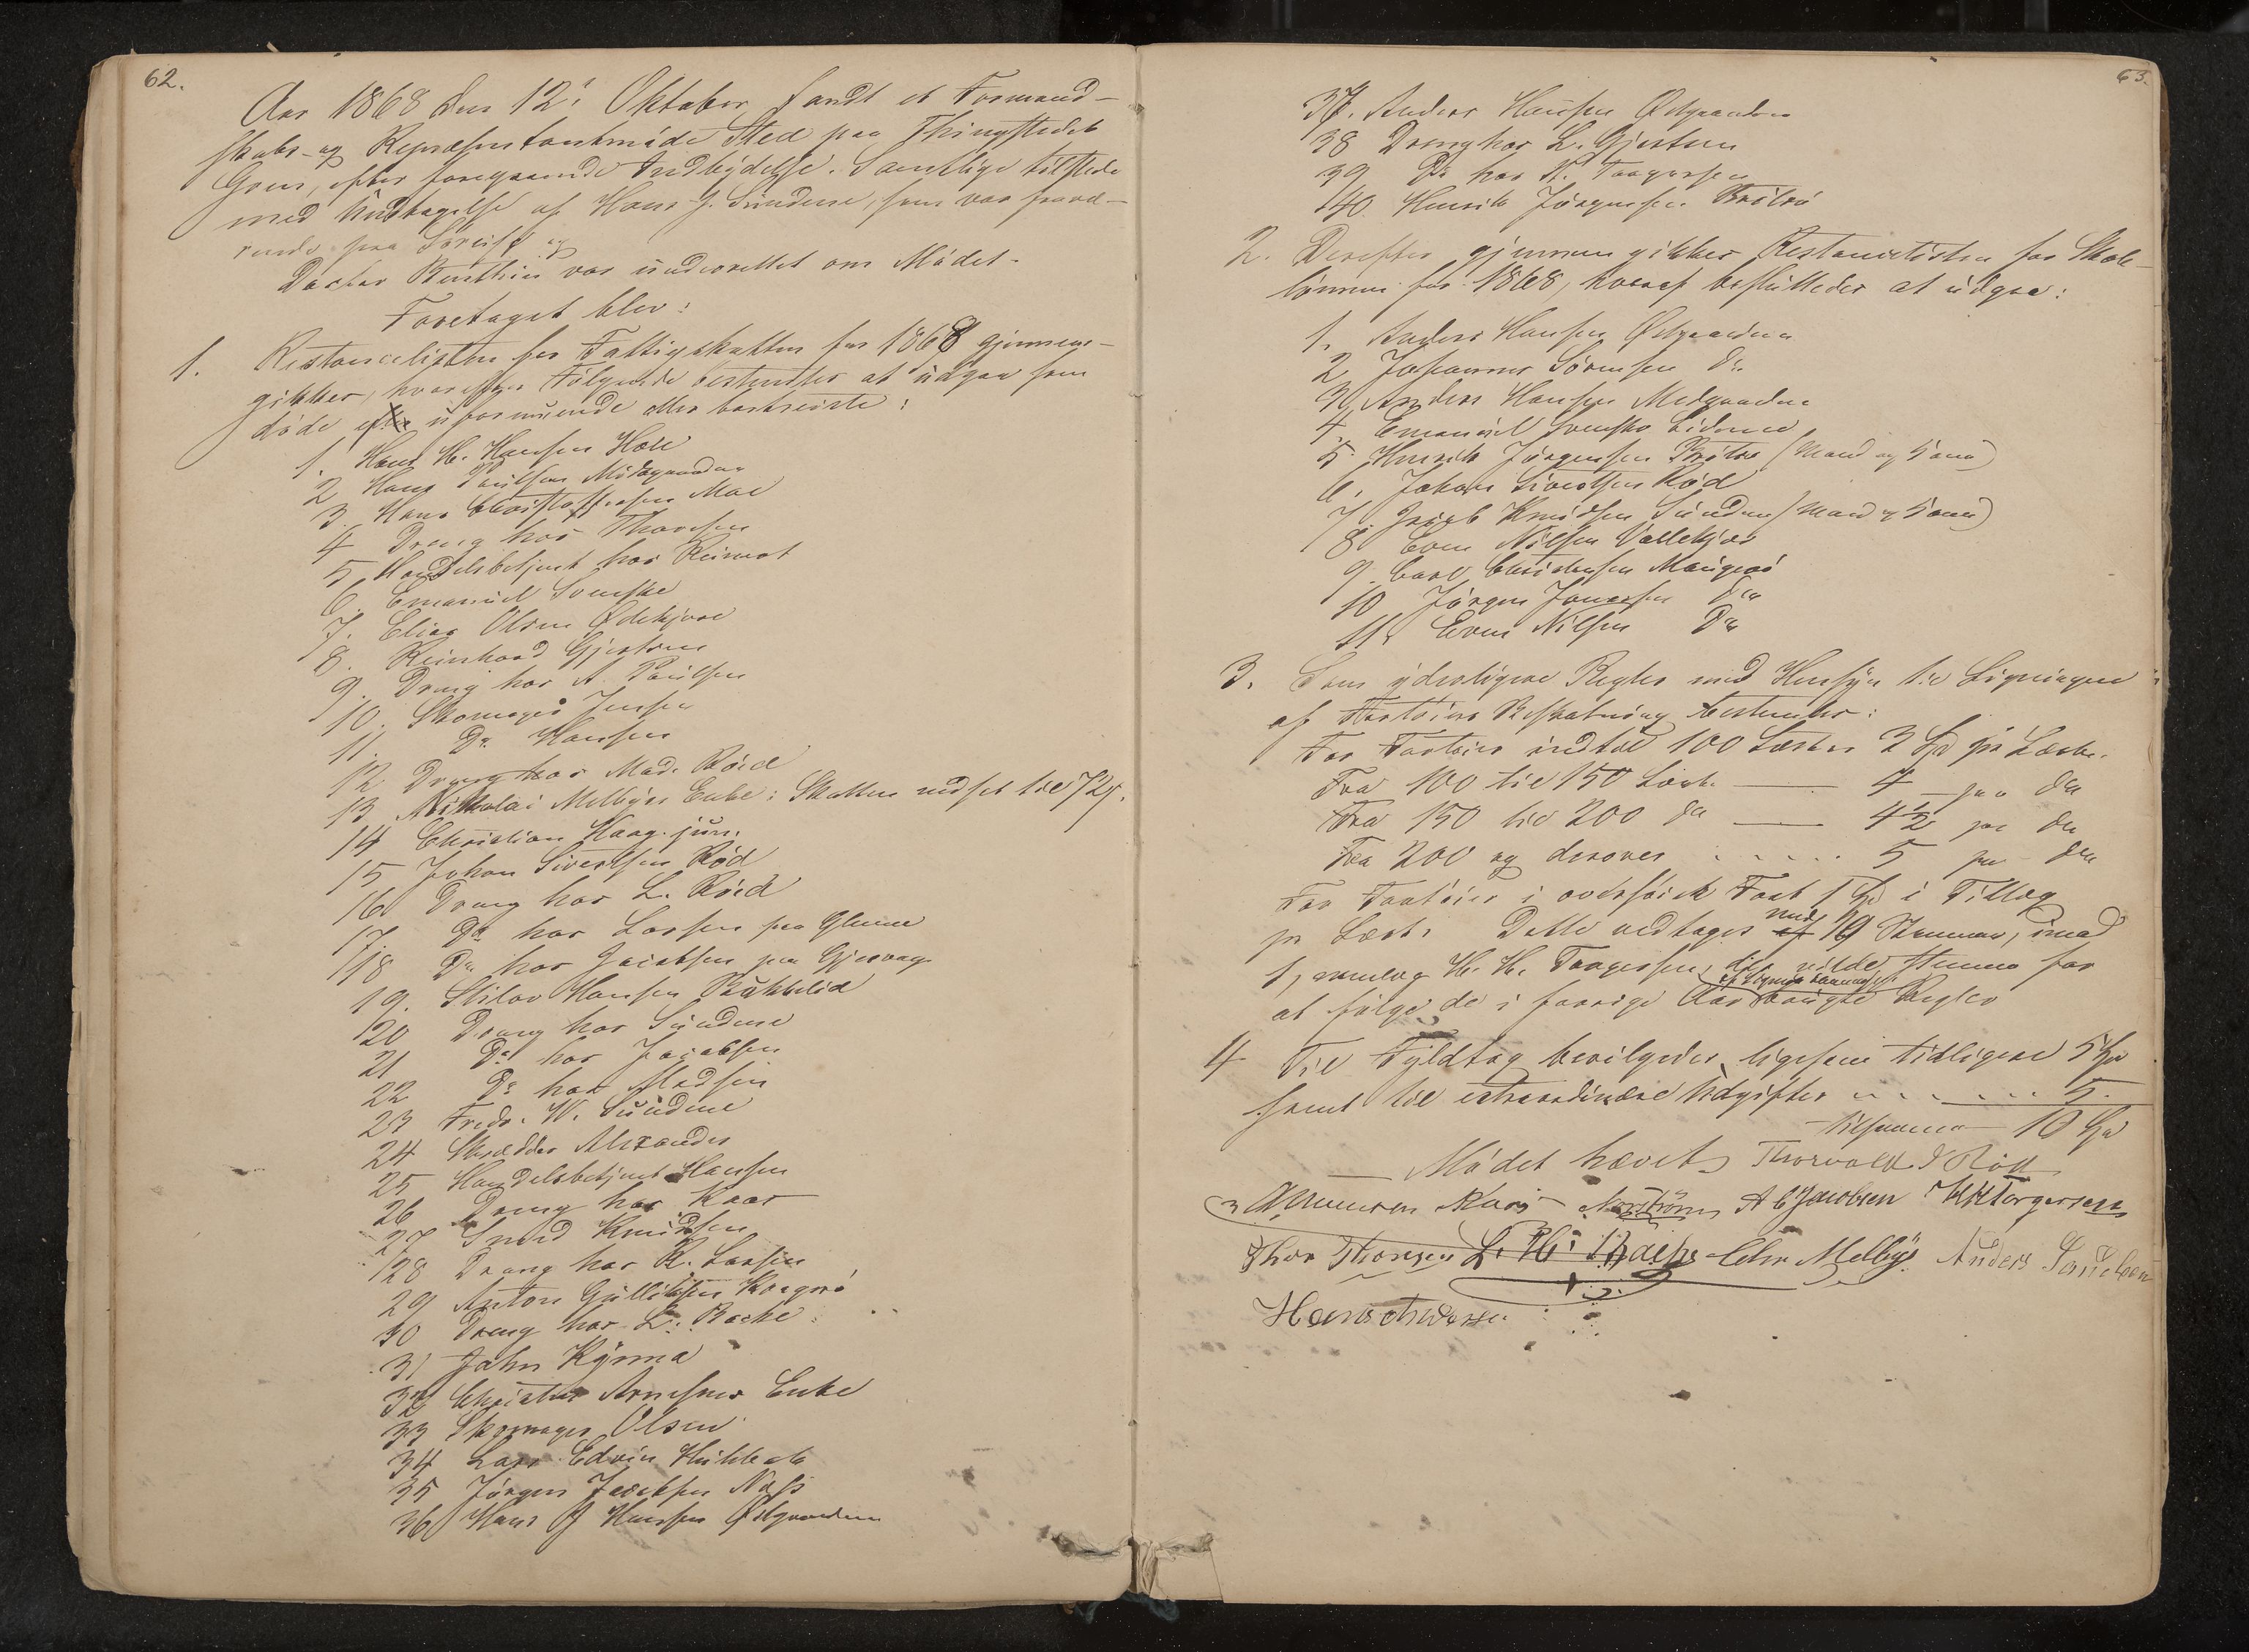 62.
Aar 1868 den 12te Oktober fandt et Formand-
skabs- og Repræsentantmøde Sted paa Thingstedet
Groes, efter foregaaende Indbydelse. Samtlige tilstede
med Undtagelse af Hans J. Sundene, som var fravæ-
rende paa og
Doctor Benthin var underrettet om Mødet.
Foretaget blev:
1. Restancelisten for Fattigskatten for 1868 gjennem-
gikkes, hvorefter Følgende bestemtes at udgaa som
døde eller uformuende eller bortreiste:
1. Hans H. Hansen
2 Hans Paulsen Midtgaarden
3. Hans Christoffersen Moe
4 Dreng hos Thoresen
5 Handelsbetjent hos Reimert
6. Emanuel Svenske
7. Elias Olsen Ødekjære
8. Reinhard Gjestren
9. Dreng hos A. Paulsen
10. Skomager Jensen
11. Do Hansen
12 Dreng hos Mad. Röed
13 Nikolai Melbyes Enke: Skatten nedsat til 72 s.
14 Christian Haag. jun.
15 Johan Sivertsen Röd
16 Dreng hos L. Röed
17 Do hos Larsen paa Glenne
18 Do hos Jacobsen paa Gjervaag
19. Hansen Bakkelid
20 Dreng hos Sundene
21 Do hos Jacobsen
22 Do hos Madsen
23 Fredr. W. Sundene
24 Skrædder Alexander
25 Handelsbetjent Hansen
26 Dreng hos Kaas
27 Smed Knudsen
28 Dreng hos R. Larsen
29 Anton Gullichsen
30 Dreng hos L. Backe
31 John
32 Arnesens Enke
33 Skomager Olsen
34 Lars Edvin
35 Jörgen Jacobsen Næss
36 Hans J Hansen Østgaarden
63.
37. Anders Hansen Østgaarden
38 Dreng hos L. Gjestren
39 Do hos H. Taagersen
40. Henrik Jörgensen
2. Derefter gjennemgikkes Restancelisten for Skole-
lönnen for 1868, hvoraf besluttedes at udgaa:
1. Anders Hansen Østgaarden
2 Johannes Sörensen do
3. Anders Hansen Midgaarden
4. Emanuel Svenske
5. Henrik Jörgensen (Mand og Kone)
6. Johan Sivertsen Röd
7. Jacob Knudsen Sundene (Mand og Kone)
8 Even Nilsen Vallekjær
9. Carl Christensen
10 Jörgen Do
11. Even Nilsen Do
3. Som yderligere Regler med Hensyn til Ligningen
af Fartöiers Beskatning bestemtes:
For Fartöier indtil 100 Læster 3 Sp pr Læst.
Fra 100 til 150 Læst. — 4 — pr do
Fra 150 til 200 do — 4½ pr do
Fra 200 og derover . . . . . 5 pr do
For Fartöier i oversöisk Fart 1 Sp i Tillæg
pr Læst. Dette vedtoges af med 19 Stemmer, imod
1, nemlig H. H. Taagersen, der vilde stemme for
at følge de i forrige Aar brugte Regler
4 Til bevilgedes ligesom tidligere 5 Spd
samt til extraordinære Udgifter . . . . . . 5.
tilsammen 10 Spd
Mödet hævet Thorvald S Röd
A C Jacobsen H H Torgersen
Thor Thorsen Chr Melbye Anders Paulsen
Hans Andersen